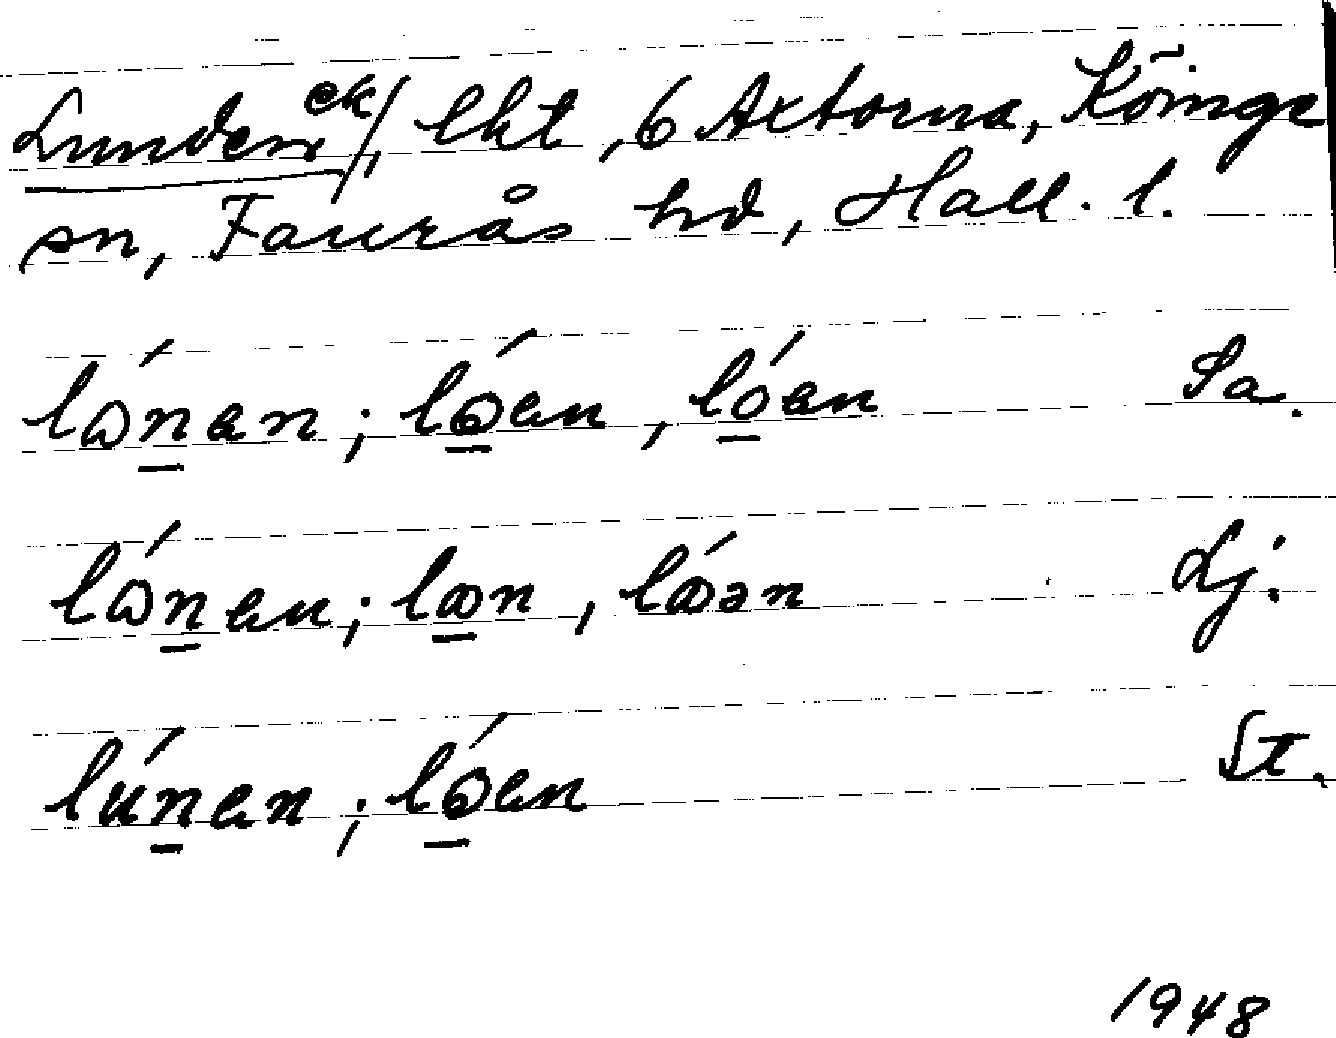 Lunden ek/, lht, 6 Axtorna, Köinge
sn, Faurås hd, Hall. l.
lånan; lɷen, lóen Sa.
lɷ́nen; lɷn, lɷ́ən Lj.
lúnen; lɷ́en St.
1948